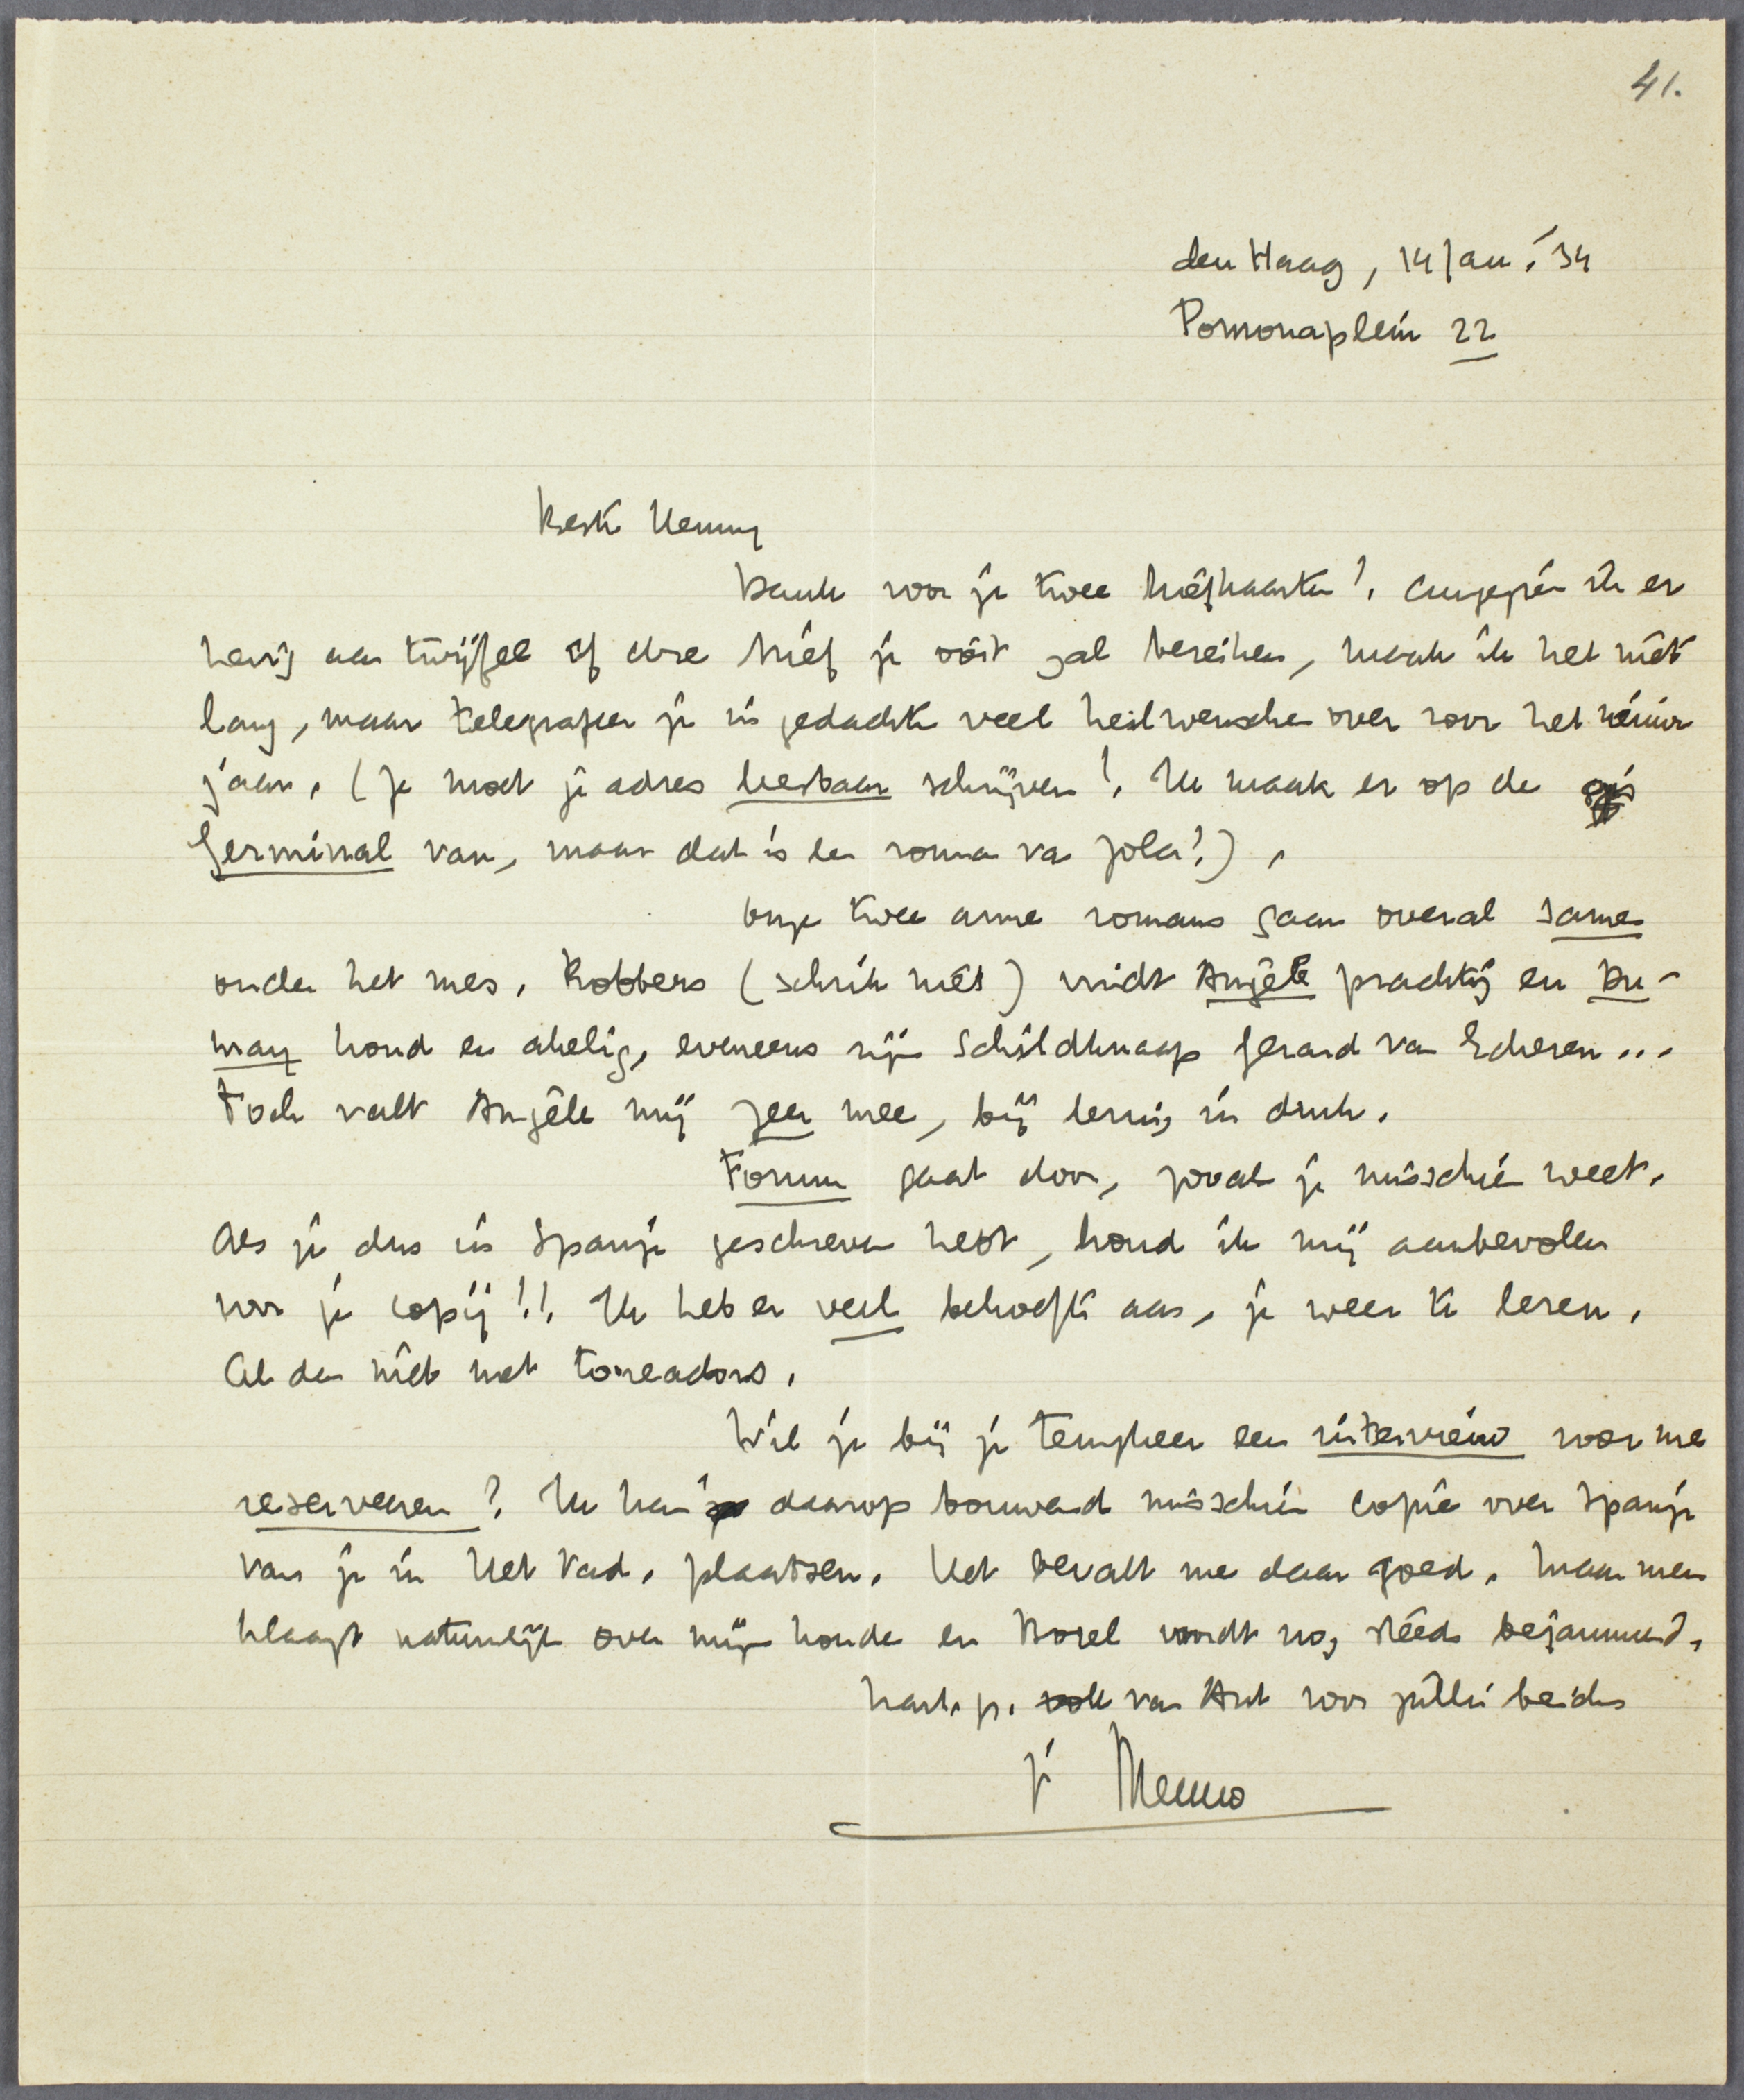 41.
den Haag, 14 Jan. '34
Pomonaplein 22
Beste Henny
Dank voor je twee briefkaarten! Aangezien ik er
hevig aan twijfel of deze brief je ooit zal bereiken, maak ik het niet
lang, maar telegrafeer je in gedachte veel heilwenschen over voor het nieuwe
jaar. (Je moet je adres leesbaar schrijven! Ik maak er op de gis
Germinal van, maar dat is een roman van Zola!).
Onze twee arme romans gaan overal samen
onder het mes. Robbers (schrik niet) vindt Angèle prachtig en Du-
may koud en akelig, eveneens zijn schildknaap Gerard van Eckeren...
Toch valt Angèle mij zeer mee, bij lezing in druk.
Forum gaat door, zooals je misschien weet.
Als je dus in Spanje geschreven hebt, houd ik mij aanbevolen
voor je copij!! Ik heb er veel behoefte aan, je weer te lezen.
Al dan niet met toreadors.
Wil je bij je tempheer een interview voor me
reserveeren? Ik kan daarop bouwend misschien copie over Spanje
van je in Het Vad. plaatsen. Het bevalt me daar goed. Maar men
klaagt natuurlijk over mijn koude en Borel wordt nog steeds bejammerd.
hart. gr. ook van Ant voor jullie beiden
je Menno